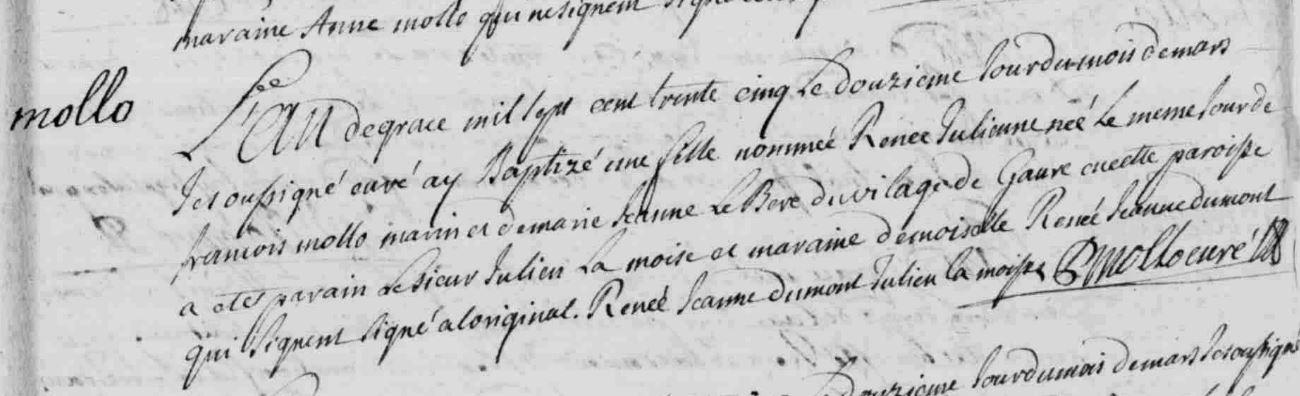 maraine Anne mollo qui ne signent signé
mollo
L'an de grace mil sept cent trente cinq Le douzieme Jour du mois de mars
Je soussigné curé ay Baptizé une fille nommée Renee Julienne néé Le meme Jour de
francois mollo marin et de marie Jeanne Le Bere du vilage de Gaure en cette paroisse
a eté parain Le Sieur Julien La moise et maraine demoiselle Renéé Jeanne dumont
qui signent signé a loriginal. Renéé Jeanne dumont Julien la moisse P mollo curé
douzieme Jour du mois de mars Je soussigné